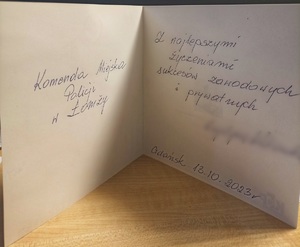 Komenda Miejska
Policji
w Łomży
Z najlepszymi
życzeniami
sukcesów zawodowych
i prywatnych
Gdańsk 12.10.2023r